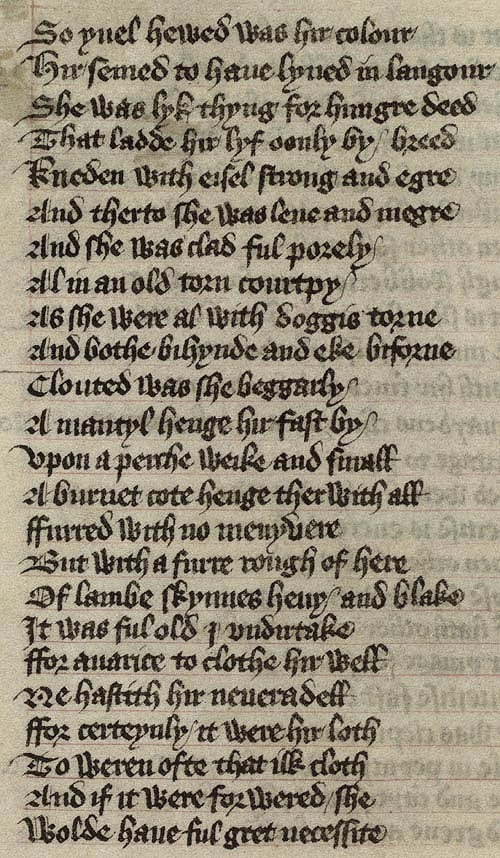 So yuel hewed was hir colour
Hir semed to haue lyued in langour
She was lyk thyng for hungre deed
That ladde hir lyf oonly by / breed
Kneden with eisel strong and egre
And therto she was lene and megre
And she was clad ful porely /
Al in an old torn courtpy /
As she were al with doggis torne
And bothe bihynde and eke biforne
Clouted was she beggarly /
A mantyl henge hir fast by /
Vpon a perche weike and small
A burnet cote henge therwith all
ffurred with no menyvere
But with a furre rough of here
Of lambe skynnes heuy / and blake
It was ful old I vndirtake
ffor auarice to clothe hir well
Ne hastith hir neueradell
ffor certeynly / it were hir loth
To weren ofte that ilk cloth
And if it were forwered / she
Wolde haue ful gret necessite